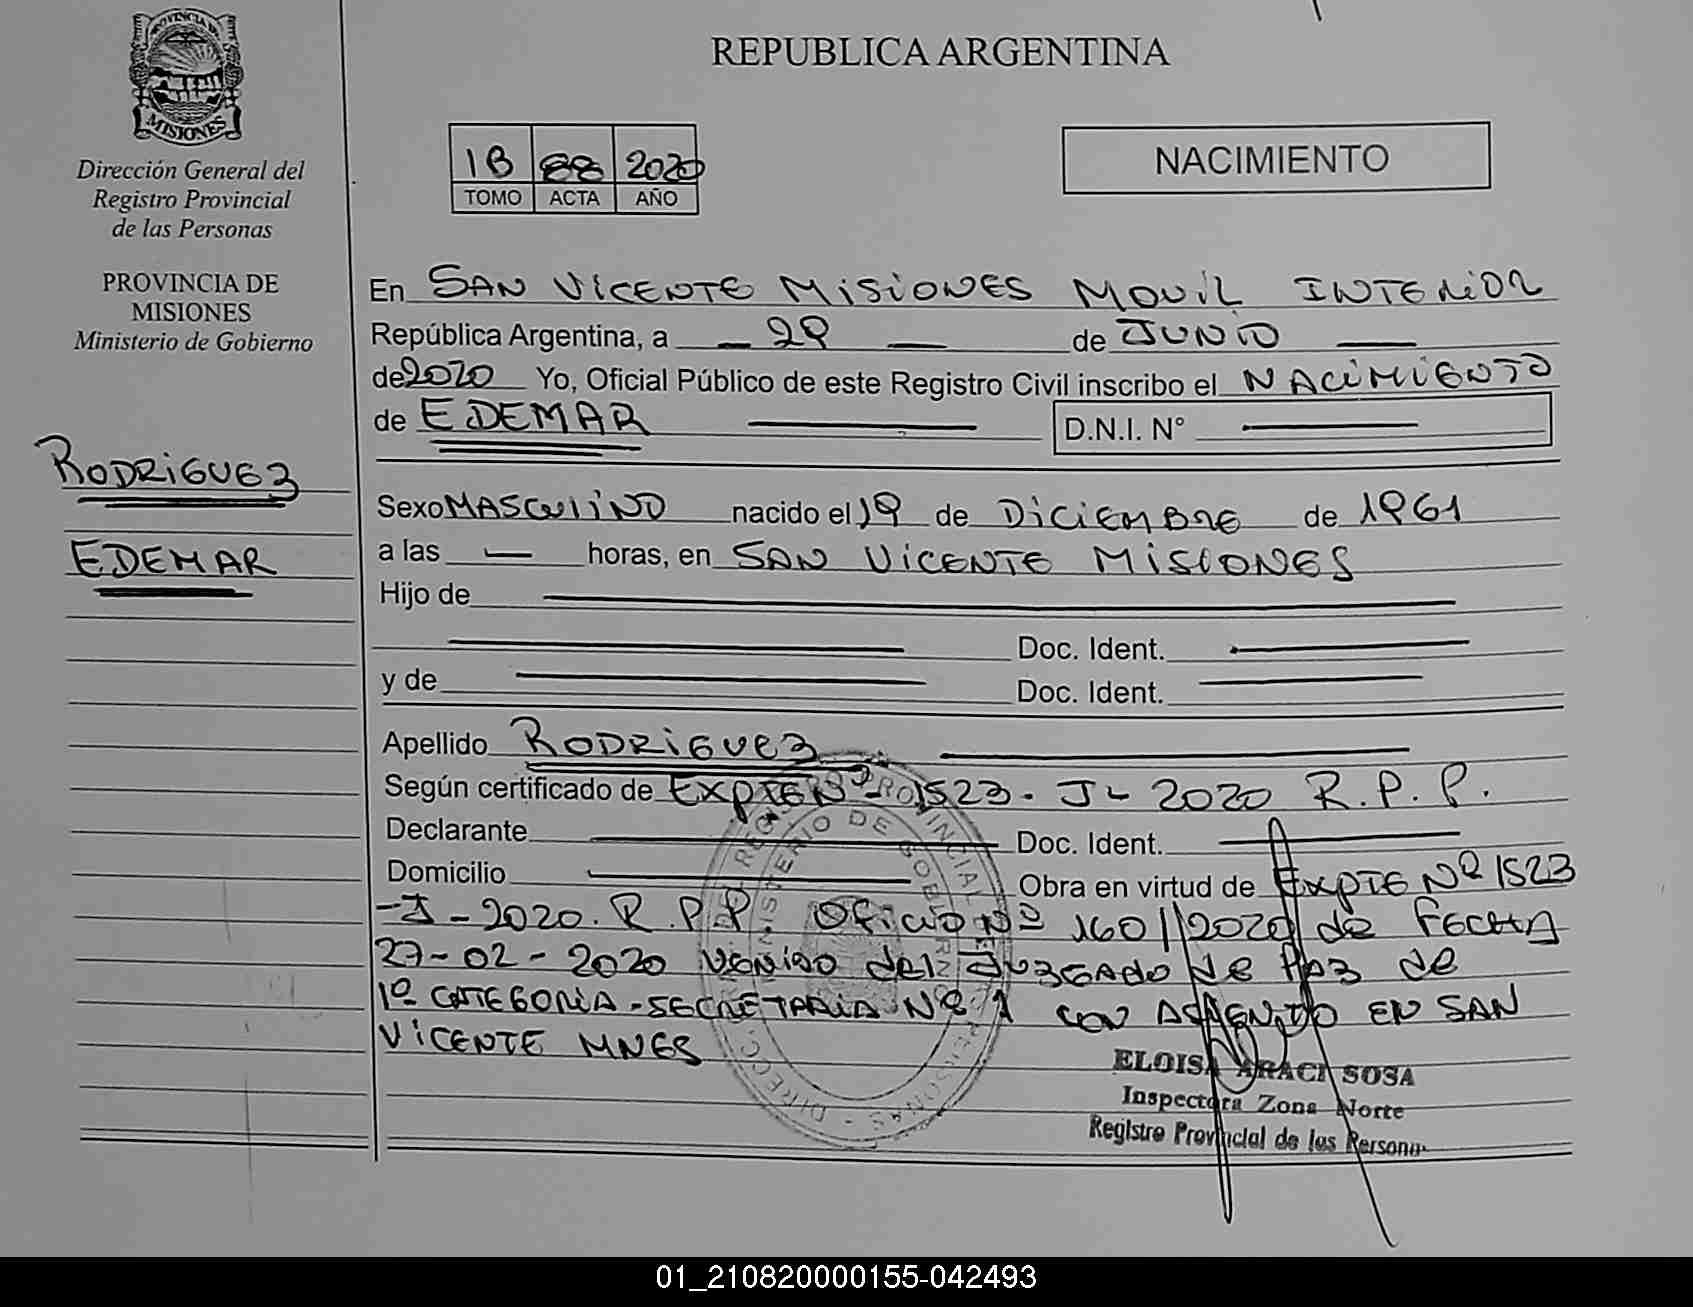 PROVINCIA DE
MISIONES
Dirección General del
Registro Provincial
de las Personas
PROVINCIA DE
MISIONES
Ministerio de Gobierno
RODRIGUEZ
EDEMAR
REPUBLICA ARGENTINA
1B 88 2020
TOMO ACTA AÑO
NACIMIENTO
En SAN VICENTE MISIONES MOVIL INTERIOR
República Argentina, a 29 de JUNIO
de 2020 Yo, Oficial Público de este Registro Civil inscribo el NACIMIENTO
de EDEMAR D.N.I. N°
Sexo MASCULINO nacido el 19 de DICIEMBRE de 1961
a las — horas, en SAN VICENTE MISIONES
Hijo de
Doc. Ident.
y de Doc. Ident.
Apellido RODRIGUEZ
Según certificado de EXPTE Nº 1523 - J - 2020 R.P.P.
Declarante Doc. Ident.
Domicilio Obra en virtud de EXPTE Nº 1523
-J-2020. R.P.P. Oficio Nº 160//2020 de FECHA
27-02-2020 VENIDO del JUZGADO de PAZ de
1º CATEGORIA-SECRETARIA Nº 1 CON ASIENTO EN SAN
VICENTE MNES
ELOISA ARACI SOSA
Inspectora Zona Norte
Registro Provincial de las Persona
01_210820000155-042493